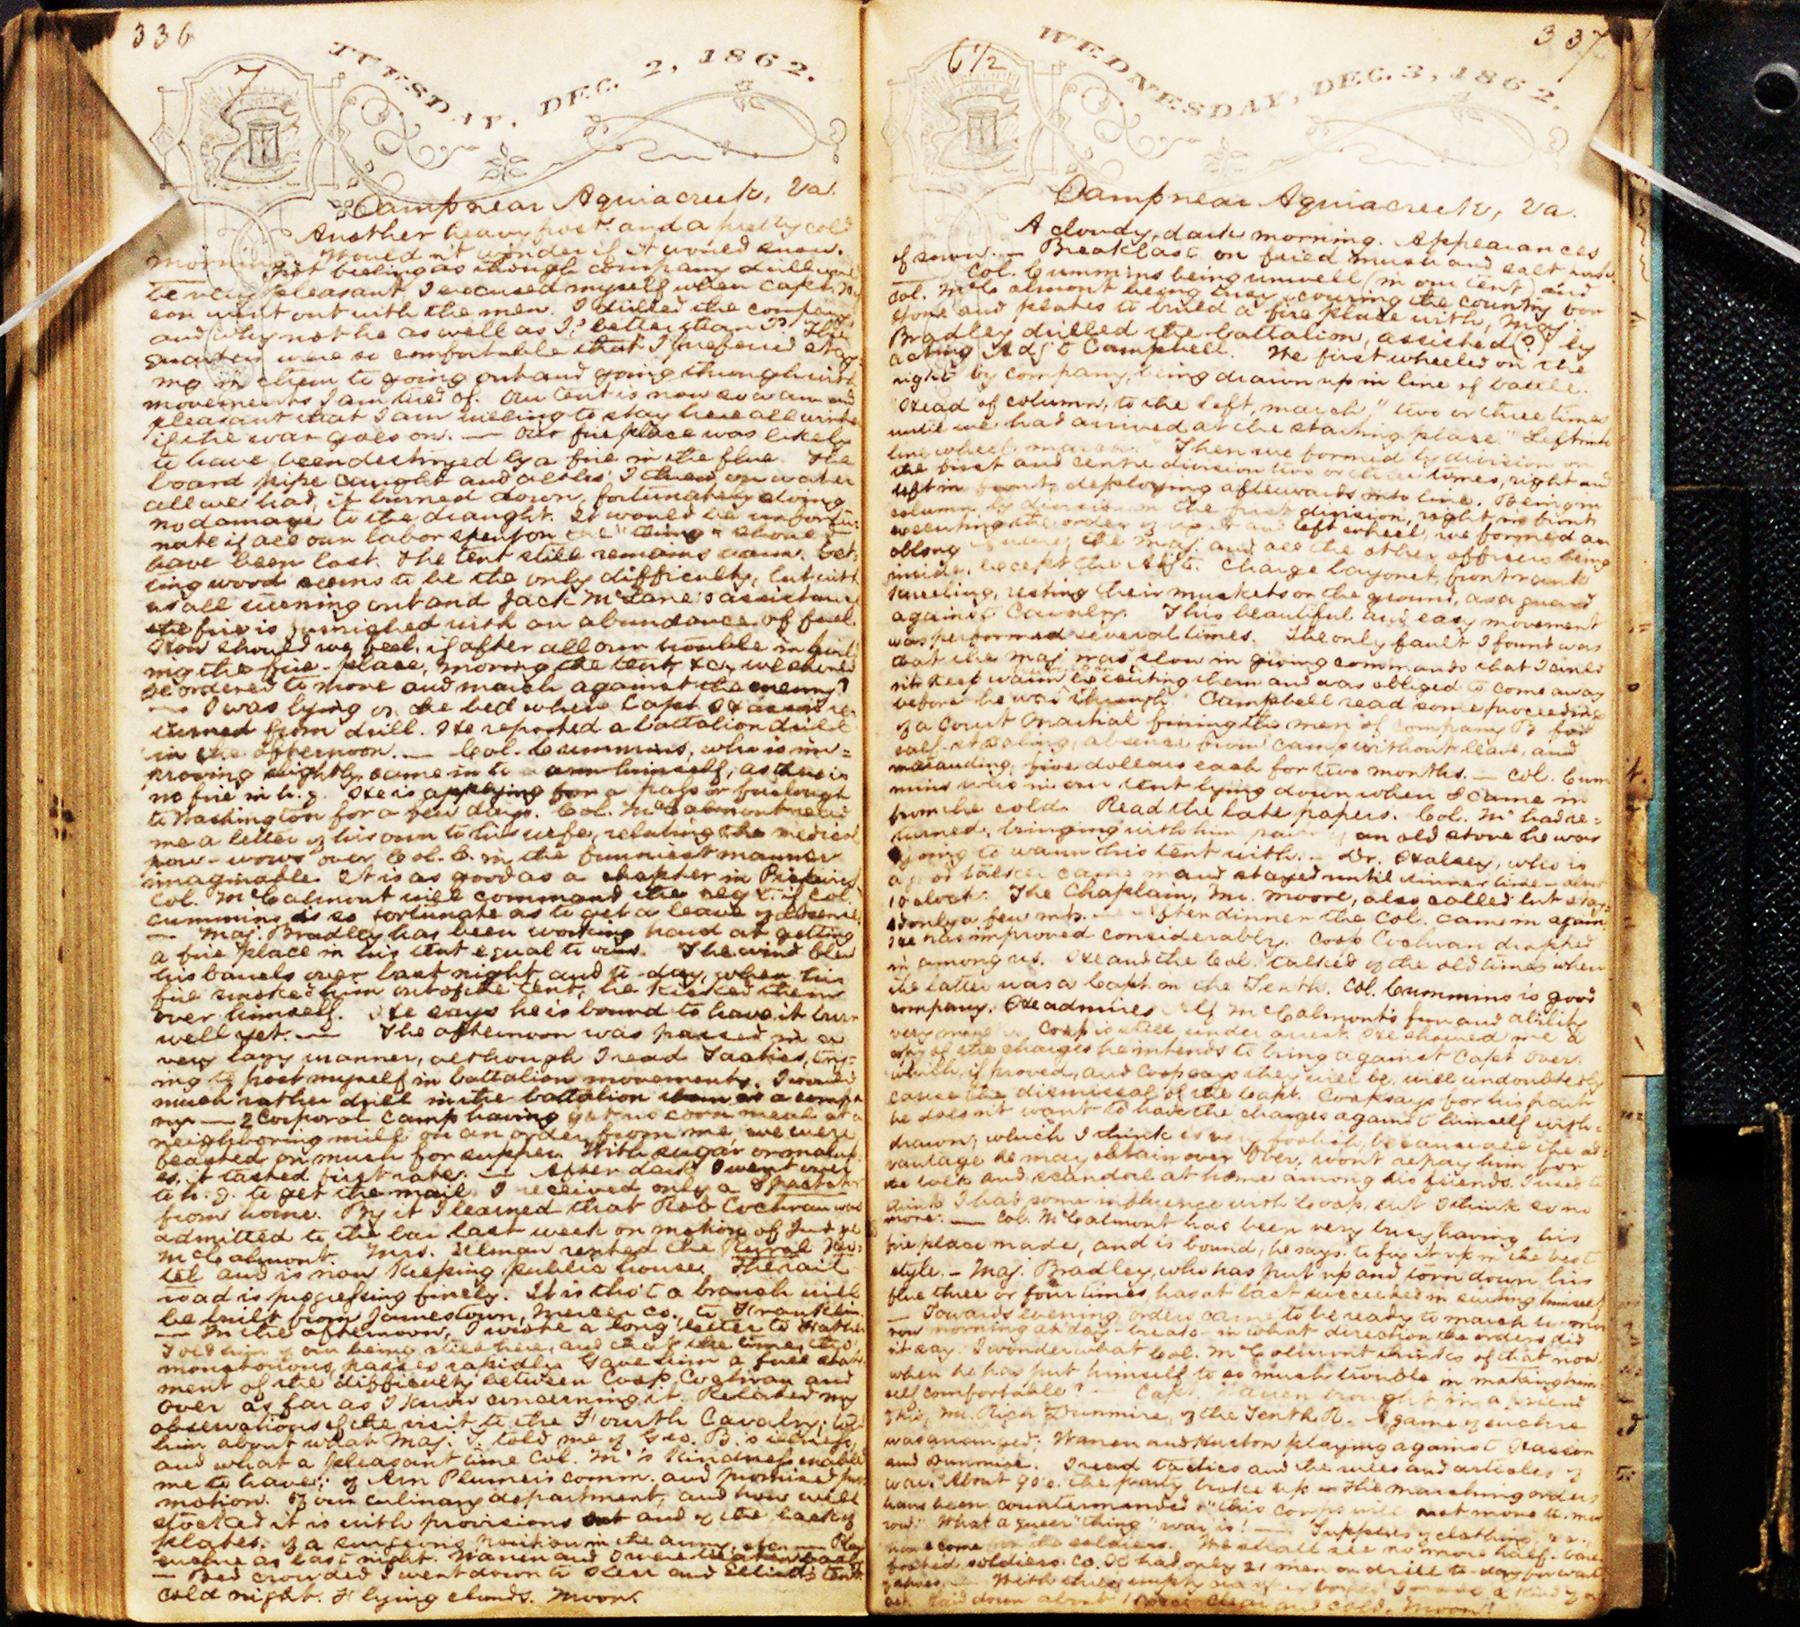 336
7
TUESDAY, DEC. 2, 1862.
Camp near Aquia creek, Va.
Another heavy frost and a pretty cold
morning. Would n't wonder if it would snow.
Not feeling as though company drill would
be very pleasant, I excused myself when Capt.
son went out with the men. I drilled the company,
and why not he as well as I, better than I? The
quarters were so comfortable that I preferred stay-
ing in them to going out and going through with
movements I am tired of. Our tent is now so warm and
pleasant that I am willing to stay here all winter
if the war goes on. — Our fire place was likely
to have been destroyed by a fire in the flue. The
board pipe caught and altho' I threw on water
all we had, it burned down, fortunately doing
no damage to the draught. It would be unfortu-
nate if all our labor spent on the "thing" should
have been lost. The tent still remains warm. Get-
ting wood seems to be the only difficulty, but with
us all turning out and Jack McLane's assistance
the fire is furnished with an abundance of fuel.
How should we feel, if after all our trouble in build-
ing the fire-place, moving the tent, &c., we should
be ordered to move and march against the enemy?
— I was lying on the bed when Capt. Hasson re-
turned from drill. He reported a battalion drill
in the afternoon. — Col. Cummins, who is im-
proving slightly, came in to warm himself, as there is
no fire in h. q. He is applying for a pass or furlough
to Washington for a few days. Col. McCalmont read
me a letter of his own to his wife, relating the medical
pow-wows over Col. C. in the funniest manner
imaginable. It is as good as a chapter in Pickwick.
Col. McCalmont will command the reg't. if Col.
Cummins is so fortunate as to get a leave of absence.
— Maj. Bradley has been working hard at getting
a fire place in his tent equal to ours. The wind blew
his barrels over last night and to-day, when his
fire smoked him out of the tent, he kicked them
over himself. He says he is bound to have it burn
well yet. — The afternoon was passed in a
very lazy manner, although I read Tactics, try-
ing to post myself in battalion movements. I would
much rather drill in the battalion than as a compa-
ny. — Corporal Camp having got us corn meal at a
neighboring mill on an order from me, we were
feasted on mush for supper. With sugar or molas-
ses, it tasted first rate. — After dark I went over
to h. q. to get the mail. I received only a Spectator
from home. By it I learned that Rob Cochran was
admitted to the bar last week on motion of Judge
McCalmont. Mrs. Ulman rented the Rural Ho-
tel and is now keeping public house. The rail
road is progressing finely. It is tho't a branch will
be built from Jamestown, Mercer co., to Franklin.
— In the afternoon, I wrote a long letter to Father.
Told him of our being still here, and that the time, tho'
monotonous, passes rapidly. Gave him a full state-
ment of the difficulty between Coop. Cochran and
Over as far as I know concerning it. Related my
observations of the visit to the Fourth Cavalry; told
him about what Maj. T. told me of Geo. B.'s illness,
and what a pleasant time Col. M's kindness enabled
me to have; of Arn Plumer's comm. and promised pro-
motion. Of our culinary department, and how well
stocked it is with provisions and of the lack of
plates; of a surgeon's position in the army, &c. — Play
euchre as last night. Warren and I were beaten badly.
— Bed crowded I went down to and Elliott's tent.
Cold night. Flying clouds. Moon.
337
6 1/2
WEDNESDAY, DEC. 3, 1862.
Camp near Aquia creek, Va.
A cloudy, dark morning. Appearances
of snow. — Breakfast on fried mush and salt pork.
Col. Cummins being unwell (in our tent) and
Col. McCalmont being busy scouring the country for
stone and plates to build a fire place with, Maj.
Bradley drilled the battalion, assisted (?) by
acting Adj't Campbell. We first wheeled on the
right by company, being drawn up in line of battle.
"Head of column, to the left, march," two or three times
until we had arrived at the starting place. "Left into
line wheel, march." Then we formed by division on
the first and centre division two or three times, right and
left in front, deploying afterwards into line. Being in
column by division on the first division, right in front
executing the order of right and left wheel, we formed an
oblong square, the Maj. and all the other officers being
inside, except the Adj't. Charge bayonet, front rank
kneeling, resting their muskets on the ground, as a guard
against Cavalry. This beautiful and easy movement
was performed several times. The only fault I found was
that the Maj. was so slow in giving commands that I could
n't keep warm executing them and was obliged to come away
before he was through. Campbell read some proceedings
of a Court Martial fining the men of company B for
calf-stealing, absence from camp without leave, and
marauding, five dollars each for two months. — Col. Cum-
mins was in our tent lying down when I came in
from the cold. Read the late papers. Col. Mc had re-
turned, bringing with him an old stove he was
going to warm his tent with. — Dr. Halsey, who is
a good talker came in and stayed until dinner time — about
10 o'clock. The Chaplain, Mr. Moore, also called but stay-
ed only a few mts. — After dinner the Col. came in again.
He has improved considerably. Coop Cochran dropped
in among us. He and the Col. talked of the old times when
the latter was a Capt. in the Tenth. Col. Cummins is good
company. He admires McCalmont's fun and ability
very much. Coop is still under arrest. He showed me a
copy of the charges he intends to bring against Capt. Over,
which, if proved, and Coop says they will be, will undoubtedly
cause the dismissal of the Capt. Coop says for his part
he doesn't want to have the charges against himself with-
drawn; which I think is very foolish, because all the ad-
vantage he may obtain over Over, won't repay him for
the talk and scandal at home among his friends. I used to
think I had some influence with Coop. but I think so no
more. — Col. McCalmont has been very busy having his
fire place made, and is bound, he says, to fix it up in the best
style. — Maj. Bradley, who has put up and torn down his
flue three or four times, has at last succeeded in suiting himself.
— Towards evening, orders came to be ready to march to-mor-
row morning at day-break — in what direction the orders did
n't say. I wonder what Col. McCalmont thinks of that now,
when he has put himself to so much trouble in making him-
self comfortable? — Capt. Warren brought in a friend
of his, Mr. Rich Dunmire, of the Tenth R. A game of euchre
was arranged; Warren and Huston playing against Hasson
and Dunmire. I read tactics and the rules and articles of
war. About 9 o.c. the party broke up — The marching orders
have been countermanded — "this corps will not move to-mor-
row." What a queer "thing" war is! — Supplies of clothing, &c.
have come for the soldiers. We shall see no more half-bare-
footed soldiers. Co. had only 21 men on drill to-day for want
of shoes. —
clear and cold. Moon!